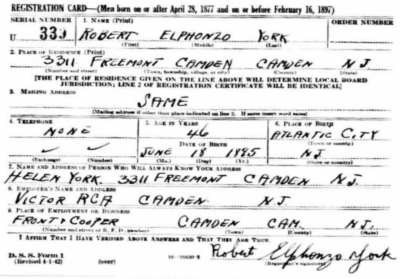 REGISTRATION CARD—(Men born on or after April 28, 1877 and on or before February 16, 1897)
SERIAL NUMBER 1. NAME (Print) ORDER NUMBER
U 33 ROBERT ELPHONZO YORK
(First) (Middle) (Last)
2. PLACE OF RESIDENCE (Print)
3311 FREEMONT CAMDEN CAMDEN N J
(Number and street) (Town, township, village, or city) (County) (State)
[THE PLACE OF RESIDENCE GIVEN ON THE LINE ABOVE WILL DETERMINE LOCAL BOARD
JURISDICTION; LINE 2 OF REGISTRATION CERTIFICATE WILL BE IDENTICAL]
3. MAILING ADDRESS
SAME
[Mailing address if other than place indicated on line 2. If same insert word same]
4. TELEPHONE 5. AGE IN YEARS 6. PLACE OF BIRTH
NONE 46 ATLANTIC CITY
DATE OF BIRTH (Town or county)
JUNE 18 1895 N J
(Exchange) (Number) (Mo.) (Day) (Yr.) (State or country)
7. NAME AND ADDRESS OF PERSON WHO WILL ALWAYS KNOW YOUR ADDRESS
HELEN YORK 3311 FREEMONT CAMDEN N J.
8. EMPLOYER'S NAME AND ADDRESS
VICTOR RCA CAMDEN N J.
9. PLACE OF EMPLOYMENT OR BUSINESS
FRONT & COOPER CAMDEN CAM. N J.
(Number and street or R. F. D. number) (Town) (County) (State)
I AFFIRM THAT I HAVE VERIFIED ABOVE ANSWERS AND THAT THEY ARE TRUE.
D. S. S. Form 1
(Revised 4-1-42) (over)
Robert Elphonzo York
(Registrant's signature)